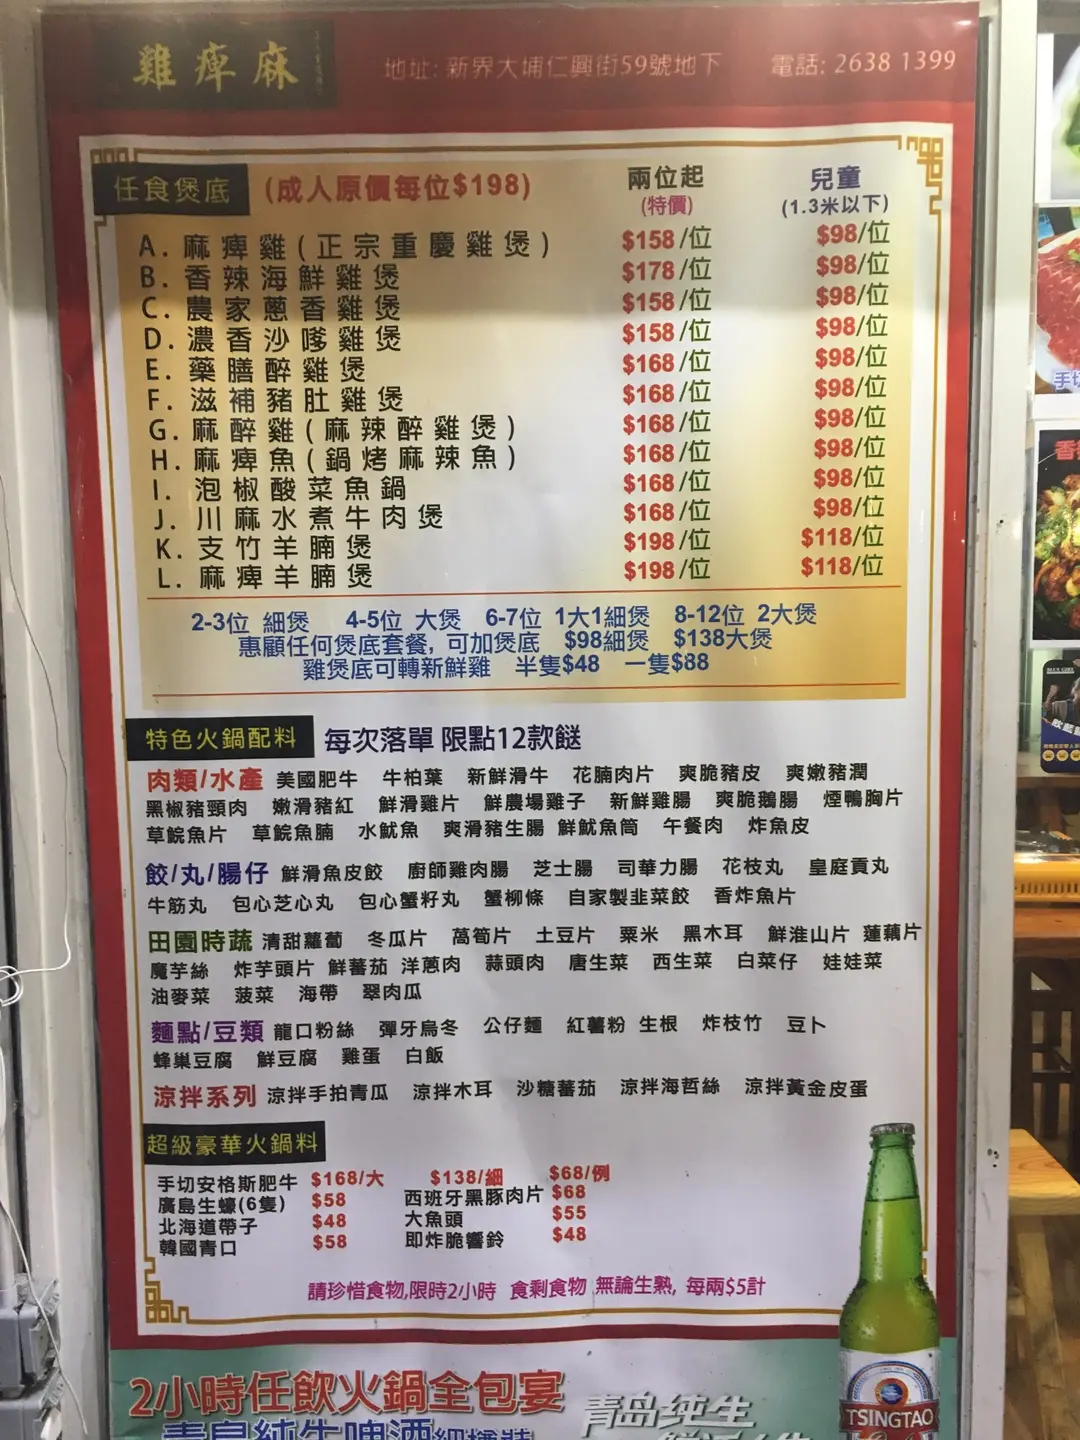 雞痺麻
地址: 新界大埔仁興街59號地下 電話: 2638 1399
任食煲底 (成人原價每位$198) 兩位起 (特價) 兒童 (1.3米以下)
A. 麻痺雞(正宗重慶雞煲) $158/位 $98/位
B. 香辣海鮮雞煲 $178/位 $98/位
C. 農家蔥香雞煲 $158/位 $98/位
D. 濃香沙嗲雞煲 $158/位 $98/位
E. 藥膳醉雞煲 $168/位 $98/位
F. 滋補豬肚雞煲 $168/位 $98/位
G. 麻醉雞(麻辣醉雞煲) $168/位 $98/位
H. 麻痺魚(鍋烤麻辣魚) $168/位 $98/位
I. 泡椒酸菜魚鍋 $168/位 $98/位
J. 川麻水煮牛肉煲 $168/位 $98/位
K. 支竹羊腩煲 $198/位 $118/位
L. 麻痺羊腩煲 $198/位 $118/位
2-3位 細煲 4-5位 大煲 6-7位 1大1細煲 8-12位 2大煲
惠顧任何煲底套餐, 可加煲底 $98細煲 $138大煲
雞煲底可轉新鮮雞 半隻$48 一隻$88
特色火鍋配料 每次落單 限點12款餸
肉類/水產 美國肥牛 牛柏葉 新鮮滑牛 花腩肉片 爽脆豬皮 爽嫩豬潤
黑椒豬頸肉 嫩滑豬紅 鮮滑雞片 鮮農場雞子 新鮮雞腸 爽脆鵝腸 煙鴨胸片
草鯇魚片 草鯇魚腩 水魷魚 爽滑豬生腸 鮮魷魚筒 午餐肉 炸魚皮
餃/丸/腸仔 鮮滑魚皮餃 廚師雞肉腸 芝士腸 司華力腸 花枝丸 皇庭貢丸
牛筋丸 包心芝心丸 包心蟹籽丸 蟹柳條 自家製韭菜餃 香炸魚片
田園時蔬 清甜蘿蔔 冬瓜片 萵筍片 土豆片 粟米 黑木耳 鮮淮山片 蓮藕片
魔芋絲 炸芋頭片 鮮蕃茄 洋蔥肉 蒜頭肉 唐生菜 西生菜 白菜仔 娃娃菜
油麥菜 菠菜 海帶 翠肉瓜
麵點/豆類 龍口粉絲 彈牙烏冬 公仔麵 紅薯粉 生根 炸枝竹 豆卜
蜂巢豆腐 鮮豆腐 雞蛋 白飯
涼拌系列 涼拌手拍青瓜 涼拌木耳 沙糖蕃茄 涼拌海哲絲 涼拌黃金皮蛋
超級豪華火鍋料
手切安格斯肥牛 $168/大 $138/細 $68/例
廣島生蠔(6隻) $58 西班牙黑豚肉片 $68
北海道帶子 $48 大魚頭 $55
韓國青口 $58 即炸脆響鈴 $48
請珍惜食物,限時2小時 食剩食物 無論生熟, 每兩$5計
2小時任飲火鍋全包宴
青島純生啤酒
青岛纯生
TSINGTAO
手切
香